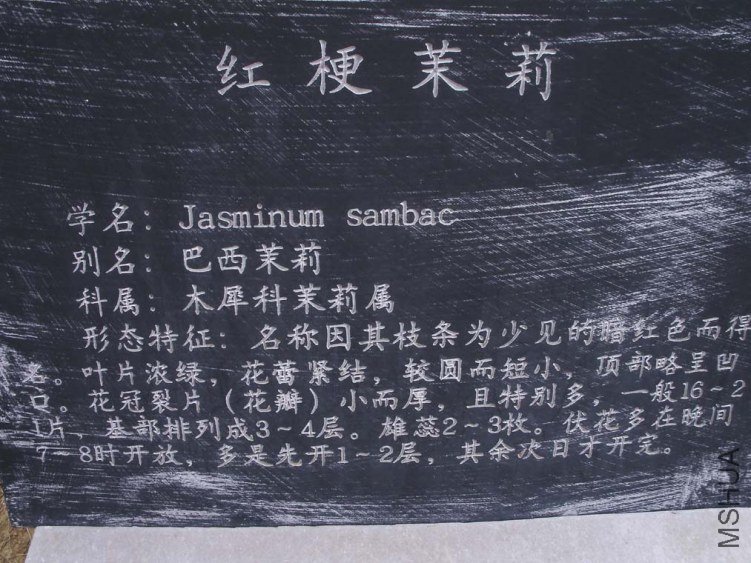 红梗茉莉
学名：Jasminum sambac
别名：巴西茉莉
科属：木犀科茉莉属
形态特征：名称因其枝条为少见的暗红色而得
名。叶片浓绿，花蕾紧结，较圆而短小，顶部略呈凹
口。花冠裂片（花瓣）小而厚，且特别多，一般16～2
1片，基部排列成3～4层。雄蕊2～3枚。伏花多在晚间
7～8时开放，多是先开1～2层，其余次日才开完。
MSHUA